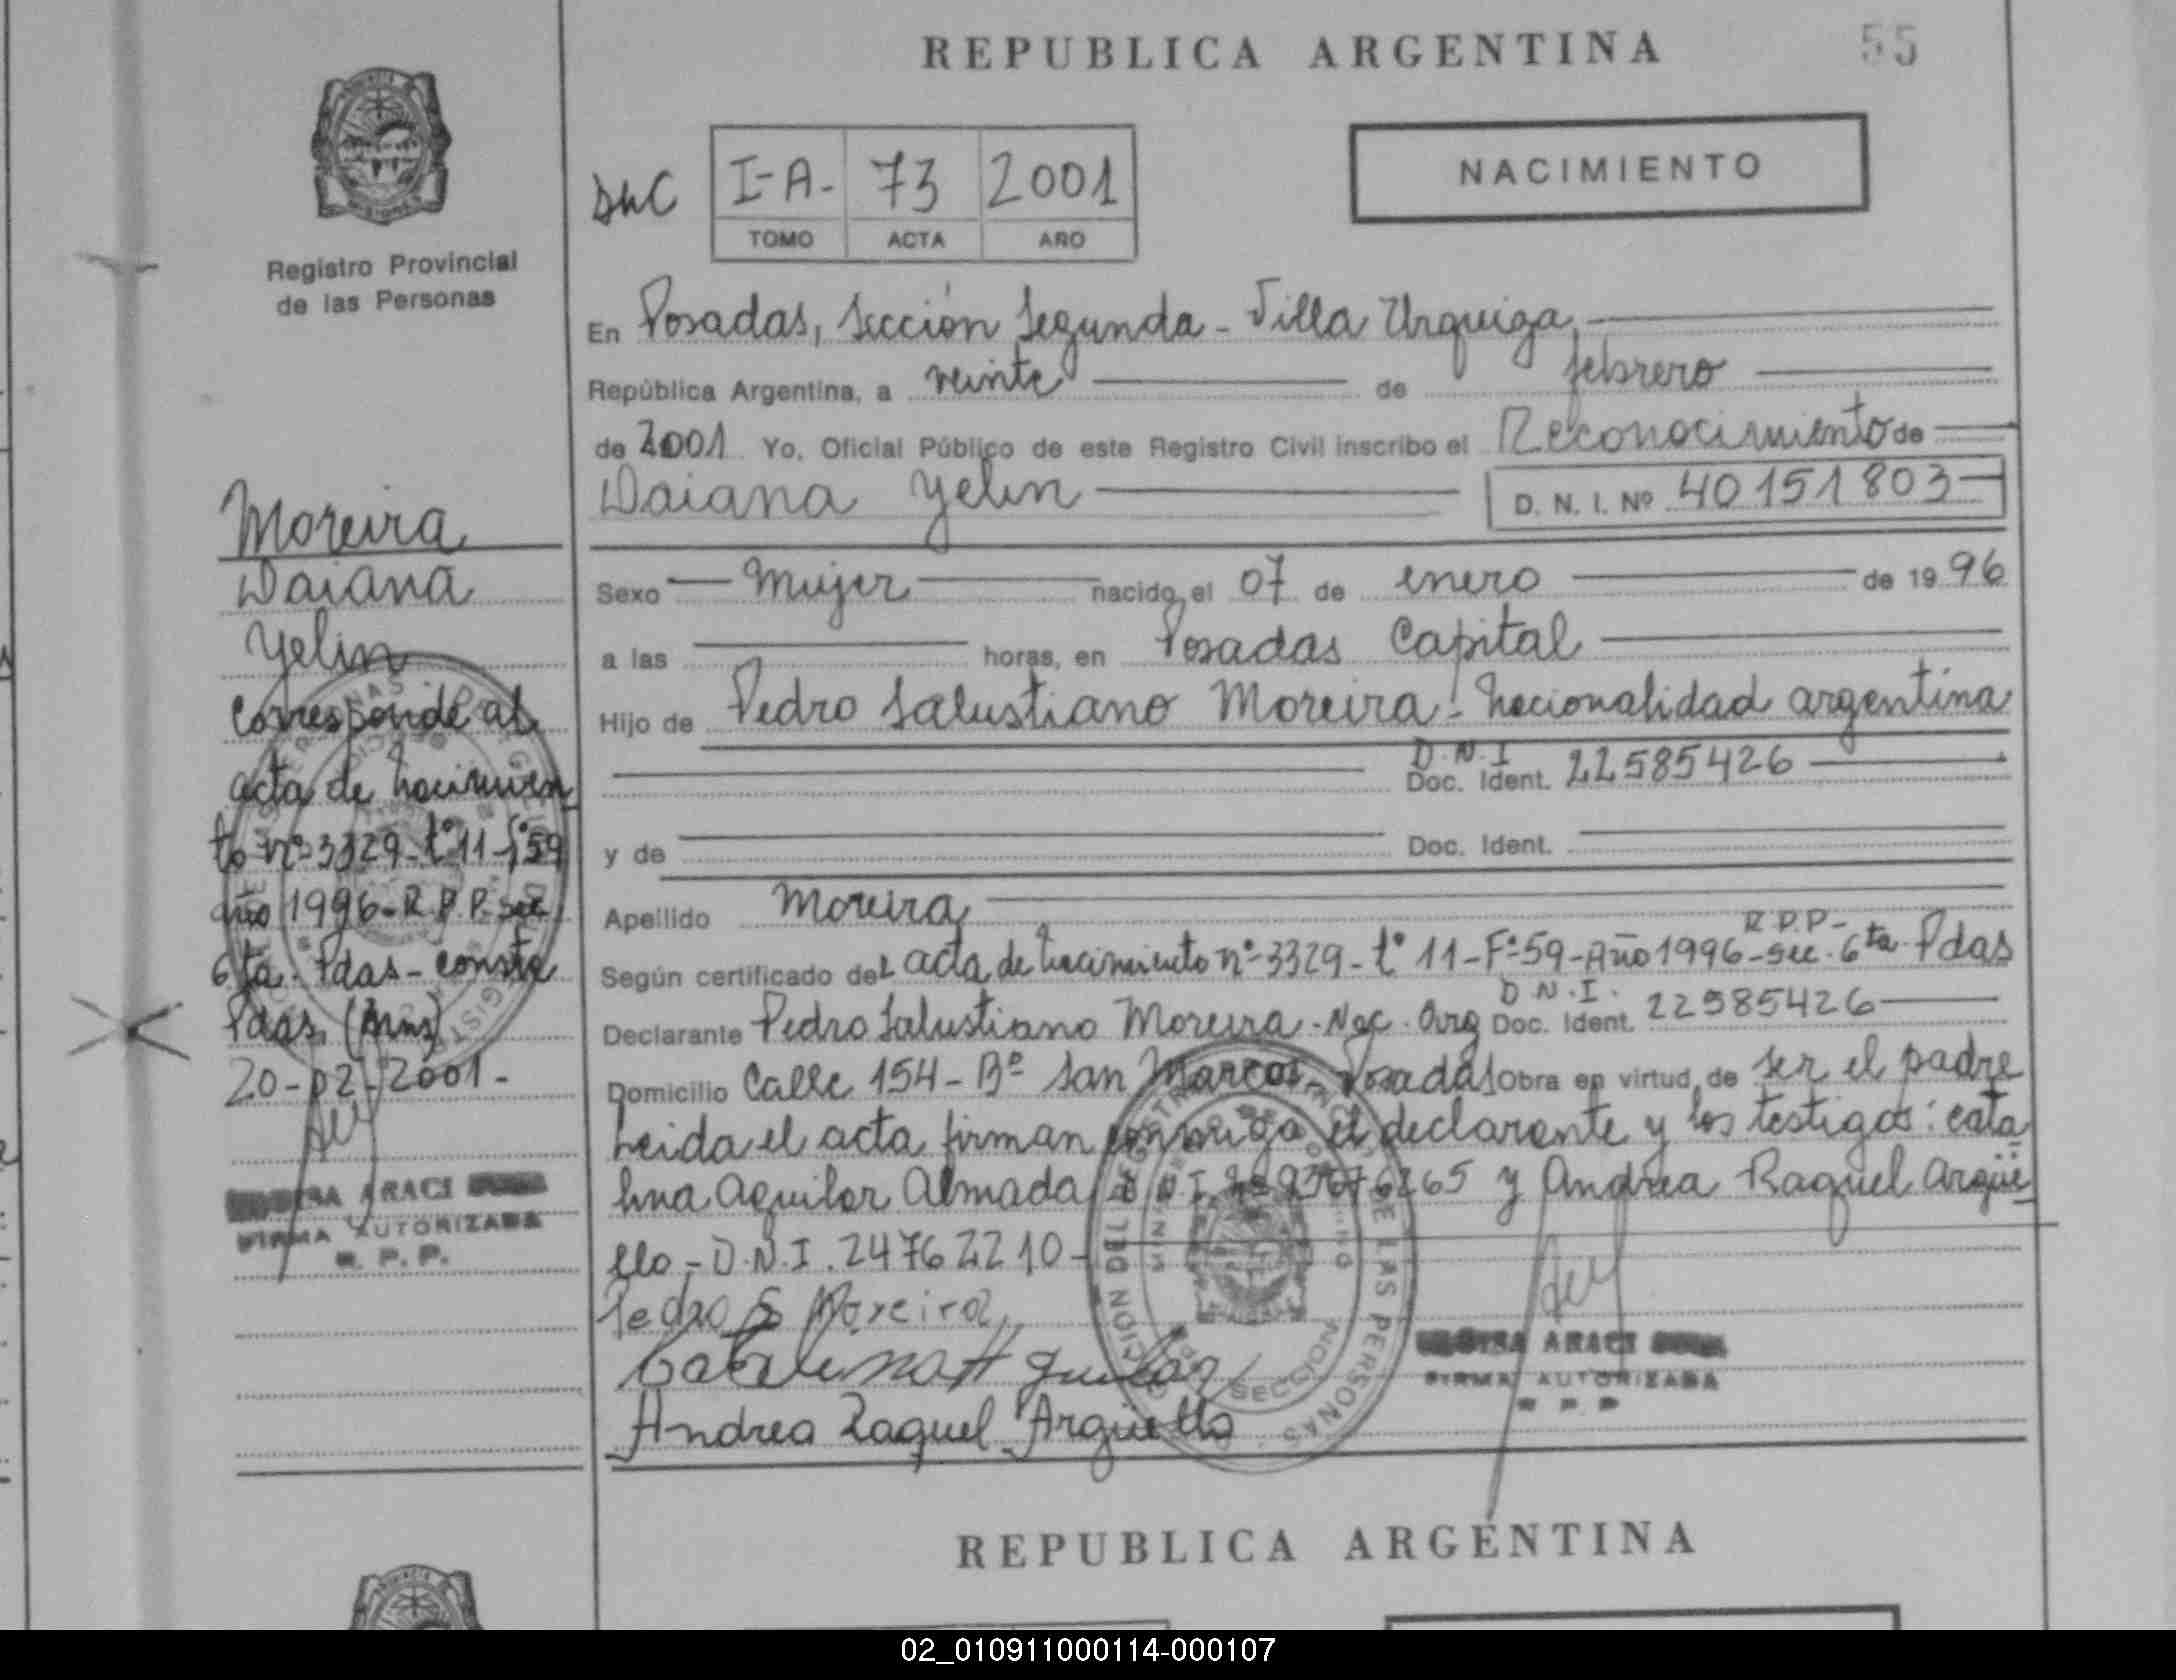 REPUBLICA ARGENTINA
55
NACIMIENTO
I-A- 73 2001
TOMO ACTA AÑO
Registro Provincial
de las Personas
En Posadas, Sección Segunda - Villa Urquiza,
República Argentina, a veinte de febrero
de 2001 Yo, Oficial Público de este Registro Civil inscribo el Reconocimiento de
Daiana Yelin D. N. I. Nº 40151803
Sexo Mujer nacido el 07 de enero de 1996
a las horas, en Posadas Capital
Hijo de Pedro Salustiano Moreira - Nacionalidad argentina
D.N.I
Doc. Ident. 22585426
y de Doc. Ident.
Apellido Moreira
R.P.P-
Según certificado del acta de nacimiento nº 3329 - tº 11 - Fº 59 - Año 1996 - Sec. 6ta. Pdas
D.N.I.
Declarante Pedro Salustiano Moreira - Nac. Arg Doc. Ident. 22585426
Domicilio Calle 154 - Bº San Marcos - Posadas Obra en virtud de ser el padre
Leida el acta firman conmigo el declarante y los testigos: Cata
lina Aguilar Almada y Andrea Raquel Argüe
llo - D.N.I. 24762210 -
Pedro S Moreira
Catalina Aguilar
Andrea Raquel Argüello
Moreira
Daiana
Yelin
Corresponde al
acta de nacimien
to nº 3329 - tº 11 - fº 59
año 1996 - R.P.P. Sec
6ta. Pdas - Conste
Pdas, (Mns)
20-02-2001-
ARACI
FIRMA AUTORIZADA
R. P. P.
ARACI
FIRMA AUTORIZADA
R. P. P.
SECCION
REPUBLICA ARGENTINA
02_010911000114-000107